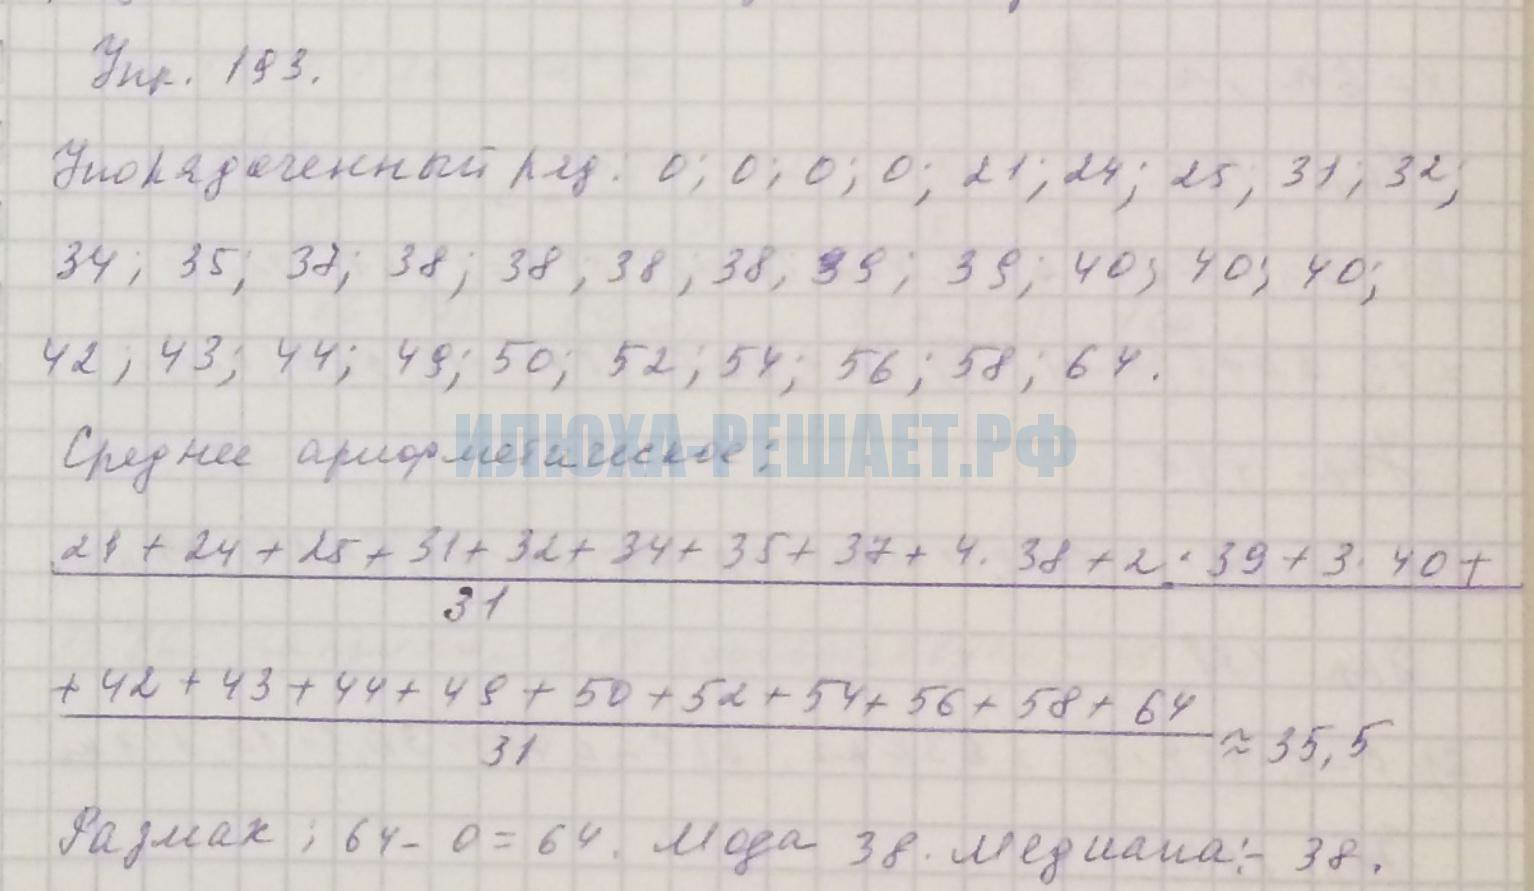 Упр. 193.
Упорядоченный ряд: 0; 0; 0; 0; 21; 24; 25; 31; 32;
34; 35; 37; 38; 38; 38; 38; 39; 39; 40; 40; 40;
42; 43; 44; 49; 50; 52; 54; 56; 58; 64.
Среднее арифметическое:
ИЛЮХА-РЕШАЕТ.РФ
21 + 24 + 25 + 31 + 32 + 34 + 35 + 37 + 4 · 38 + 2 · 39 + 3 · 40 +
31
+ 42 + 43 + 44 + 49 + 50 + 52 + 54 + 56 + 58 + 64
31
≈ 35,5
Размах: 64 - 0 = 64. Мода 38. Медиана:- 38.